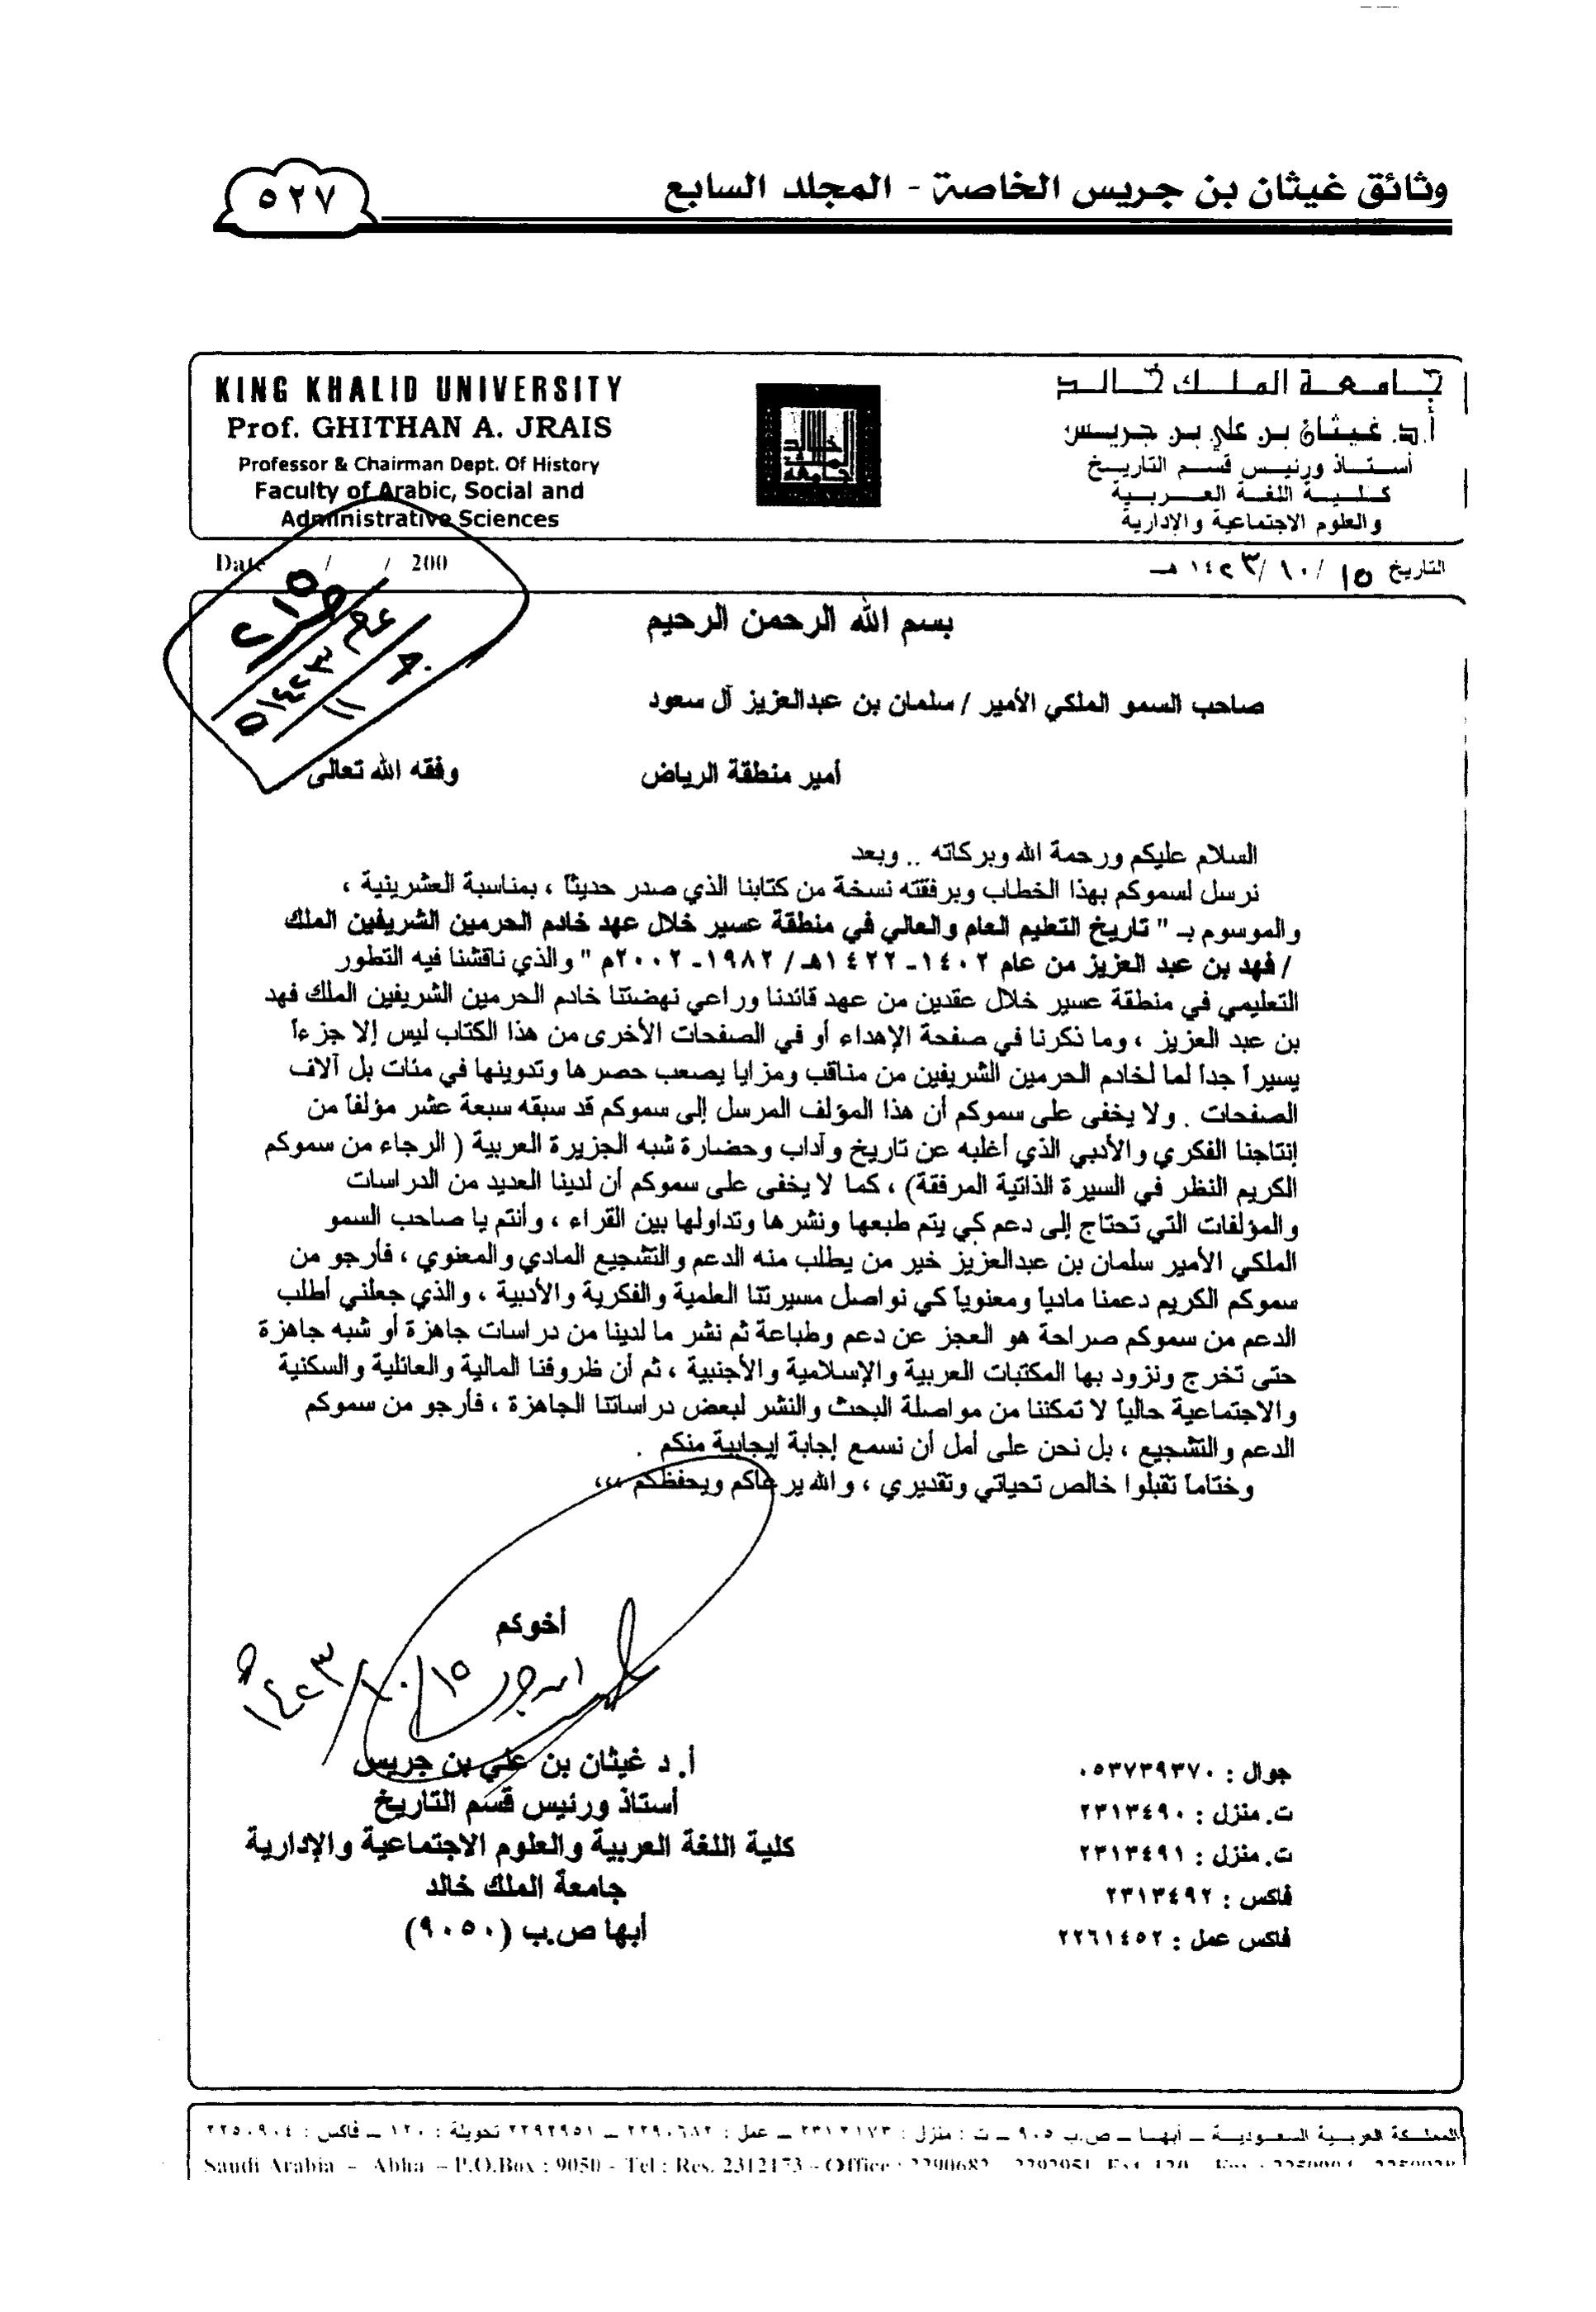 وثائق غيثان بن جريس الخاصة - المجلد السابع
٥٢٧
KING KHALID UNIVERSITY
Prof. GHITHAN A. JRAIS
Professor & Chairman Dept. Of History
Faculty of Arabic, Social and
Administrative Sciences
جامعة الملك خالد
أ.د. غيثان بن علي بن جريس
أستاذ ورئيس قسم التاريخ
كلية اللغة العربية
والعلوم الاجتماعية والإدارية
جامعة الملك خالد
Date / / 200
التاريخ ١٥ / ١٠ / ١٤٢٣ هـ
بسم الله الرحمن الرحيم
صاحب السمو الملكي الأمير / سلمان بن عبدالعزيز آل سعود
أمير منطقة الرياض وفقه الله تعالى
السلام عليكم ورحمة الله وبركاته .. وبعد
نرسل لسموكم بهذا الخطاب وبرفقته نسخة من كتابنا الذي صدر حديثاً ، بمناسبة العشرينية ،
والموسوم بـ " تاريخ التعليم العام والعالي في منطقة عسير خلال عهد خادم الحرمين الشريفين الملك
/ فهد بن عبد العزيز من عام ١٤٠٢- ١٤٢٢هـ/ ١٩٨٢- ٢٠٠٢م " والذي ناقشنا فيه التطور
التعليمي في منطقة عسير خلال عقدين من عهد قائدنا وراعي نهضتنا خادم الحرمين الشريفين الملك فهد
بن عبد العزيز ، وما ذكرنا في صفحة الإهداء أو في الصفحات الأخرى من هذا الكتاب ليس إلا جزءاً
يسيراً جداً لما لخادم الحرمين الشريفين من مناقب ومزايا يصعب حصرها وتدوينها في مئات بل آلاف
الصفحات . ولا يخفى على سموكم أن هذا المؤلف المرسل إلى سموكم قد سبقه سبعة عشر مؤلفاً من
إنتاجنا الفكري والأدبي الذي أغلبه عن تاريخ وآداب وحضارة شبه الجزيرة العربية ( الرجاء من سموكم
الكريم النظر في السيرة الذاتية المرفقة) ، كما لا يخفى على سموكم أن لدينا العديد من الدراسات
والمؤلفات التي تحتاج إلى دعم كي يتم طبعها ونشرها وتداولها بين القراء ، وأنتم يا صاحب السمو
الملكي الأمير سلمان بن عبدالعزيز خير من يطلب منه الدعم والتشجيع المادي والمعنوي ، فأرجو من
سموكم الكريم دعمنا مادياً ومعنوياً كي نواصل مسيرتنا العلمية والفكرية والأدبية ، والذي جعلني أطلب
الدعم من سموكم صراحة هو العجز عن دعم وطباعة ثم نشر ما لدينا من دراسات جاهزة أو شبه جاهزة
حتى تخرج ونزود بها المكتبات العربية والإسلامية والأجنبية ، ثم أن ظروفنا المالية والعائلية والسكنية
والاجتماعية حالياً لا تمكننا من مواصلة البحث والنشر لبعض دراساتنا الجاهزة ، فأرجو من سموكم
الدعم والتشجيع ، بل نحن على أمل أن نسمع إجابة إيجابية منكم .
وختاماً تقبلوا خالص تحياتي وتقديري ، والله يرعاكم ويحفظكم ،،،
أخوكم
١٥/١٠/١٤٢٣هـ
أ. د غيثان بن علي بن جريس
أستاذ ورئيس قسم التاريخ
كلية اللغة العربية والعلوم الاجتماعية والإدارية
جامعة الملك خالد
أبها ص.ب (٩٠٥٠)
جوال : ٠٥٣٧٣٩٣٧٠
ت. منزل : ٢٣١٣٤٩٠
ت. منزل : ٢٣١٣٤٩١
فاكس : ٢٣١٣٤٩٢
فاكس عمل : ٢٢٦١٤٥٢
المملكة العربية السعودية – أبها – ص.ب ٩٠٥ – ت : منزل : ٢٣١٢١٧٣ – عمل : ٢٢٩٠٦٨٢ – ٢٢٩٢٩٥١ تحويلة : ١٢٠ – فاكس : ٢٢٥٠٩٠٤
Saudi Arabia – Abha – P.O.Box : 9050 - Tel : Res. 2312173 – Office : 2290682